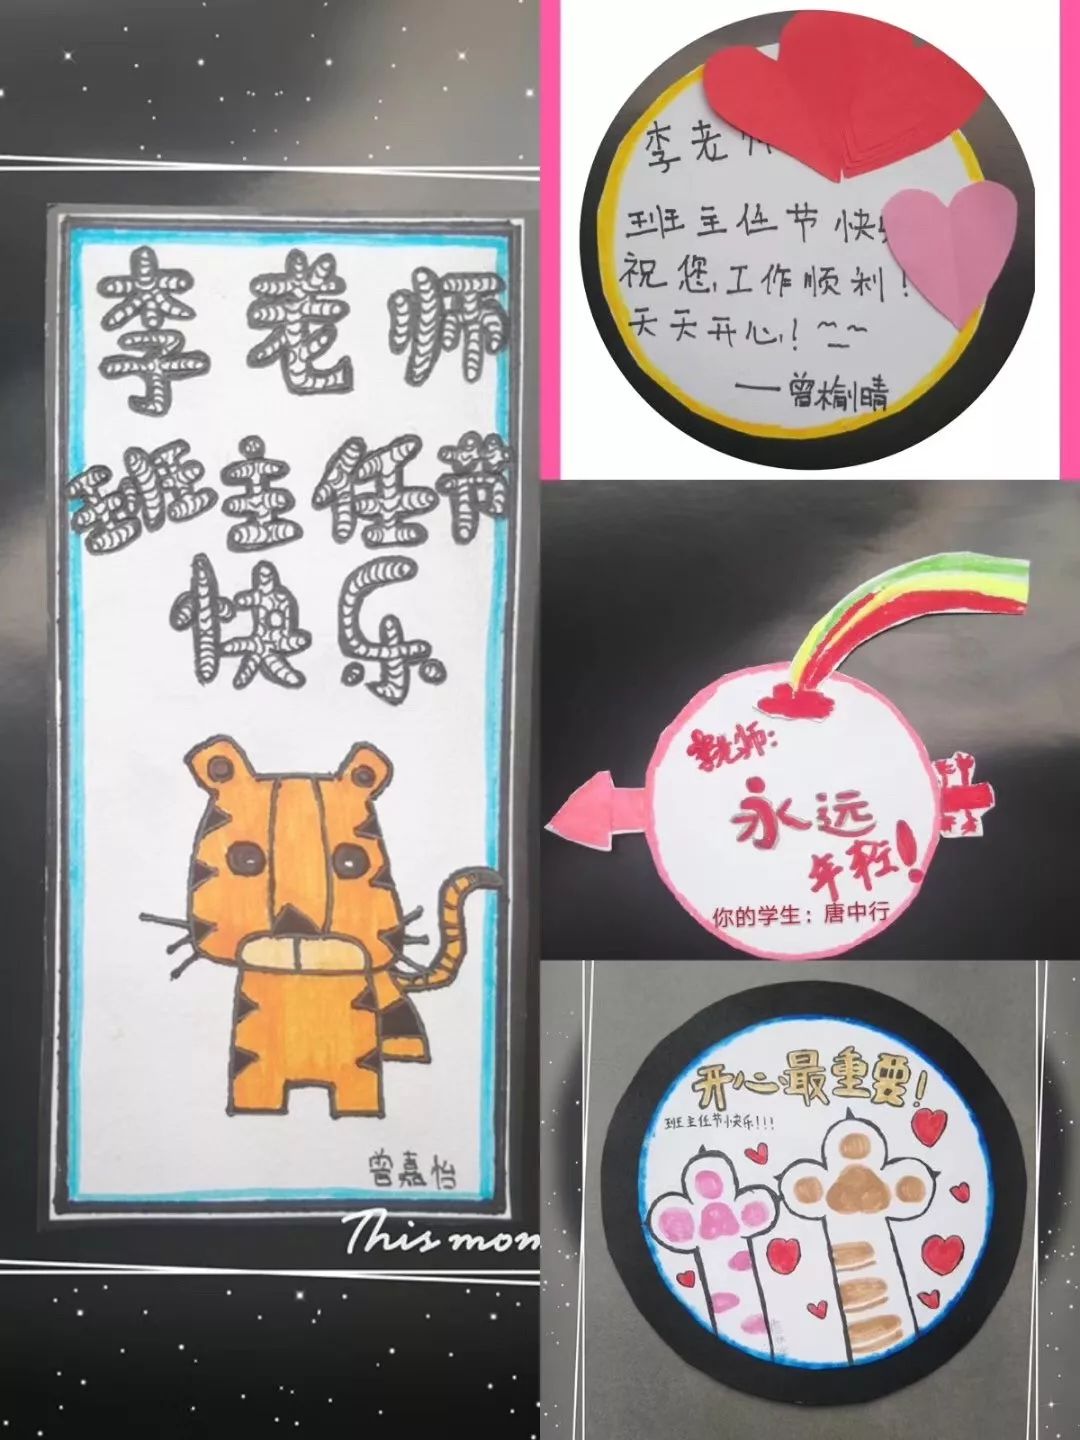 李老师
班主任节
快乐
曾嘉怡
This mom
李老师
班主任节快乐
祝您,工作顺利!
天天开心!
——曾榆晴
李老师:
永远
年轻!
你的学生:唐中行
开心最重要!
班主任节快乐!!!